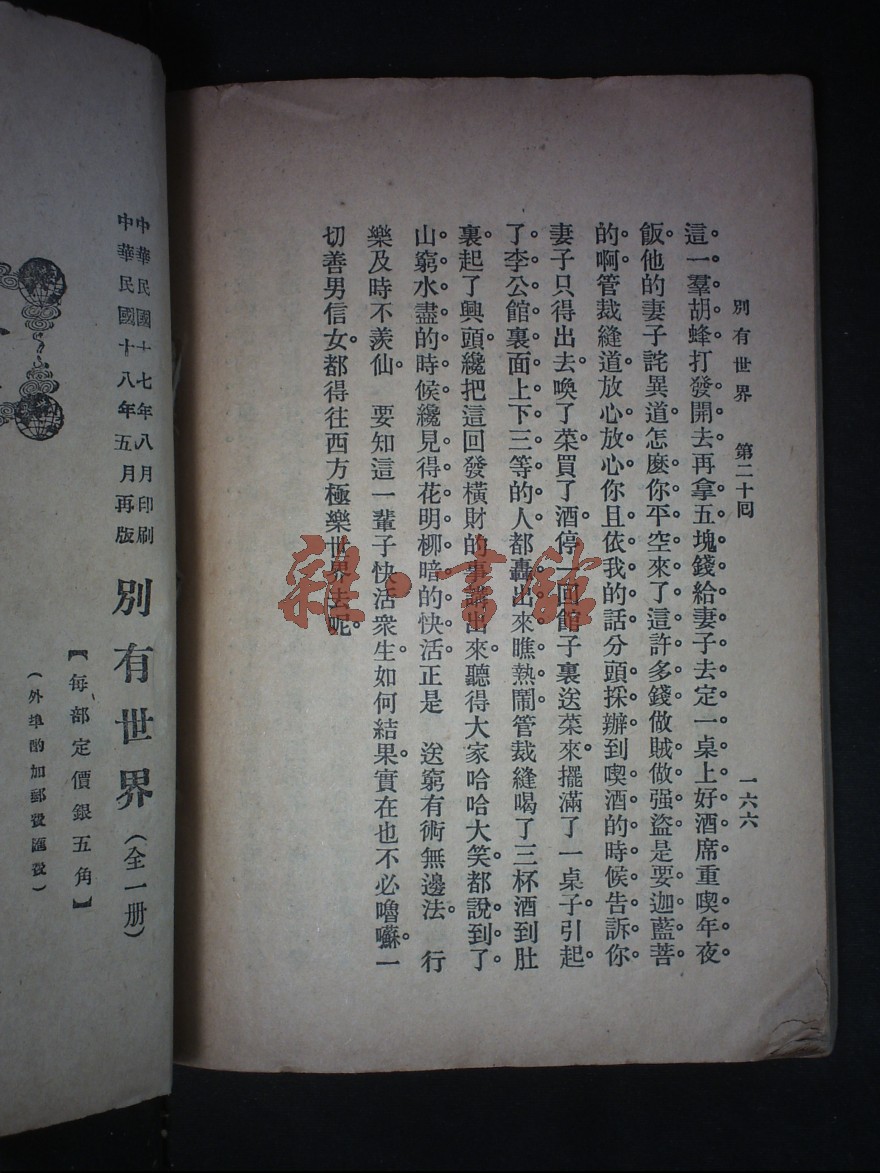 別有世界　第二十回　一六六
這一羣胡蜂打發開去。再拿五塊錢給妻子去定一桌上好酒席。重喫年夜
飯。他的妻子詫異道。怎麼你平空來了這許多錢。做賊做强盜是要迦藍菩
的啊。管裁縫道。放心放心。你且依我的話。分頭採辦。到喫酒的時候告訴你。
妻子只得出去。喚了菜。買了酒。停一回館子裏送菜來。擺滿了一桌子。引起
了李公館裏面上下三等的人。都轟出來瞧熱鬧。管裁縫喝了三杯酒到肚
裏。起了興頭。纔把這回發橫財的事講出來。聽得大家哈哈大笑。都說到了
山窮水盡的時候。纔見得花明柳暗的快活。正是　送窮有術無邊法。　行
樂及時不羨仙。　要知這一輩子快活衆生如何結果。實在也不必嚕囌。一
切善男信女。都得往西方極樂世界去呢。
中華民國十七年八月印刷
中華民國十八年五月再版
別有世界（全一册）
【每部定價銀五角】
（外埠酌加郵費匯費）
雜·書館